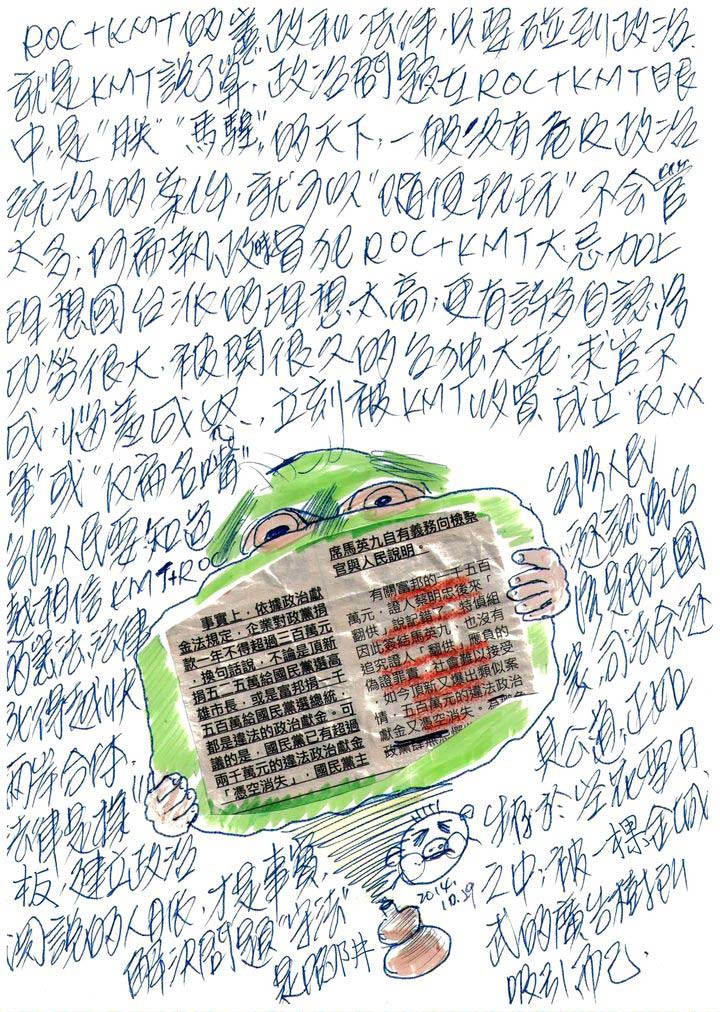 ROC+KMT的憲政和法律,只要碰到政治
就是KMT說了算,政治問題在ROC+KMT眼
中,是"朕""馬騜"的天下,一般沒有危及政治
統治的案件,就可以"隨便玩玩"不会官
太多;阿扁執政時冒犯ROC+KMT大忌,加上
理想國台派的理想太高;更有許多自認為
功勞很大,被關很久的台独大老,求官不
成,惱羞成怒,立刻被KMT收買,成立"反XX
軍"或"反扁名嘴"
台灣人民要知道
越相信KMT+ROC
的憲法,法律
死得越快
兩岸合体,
法律是樣
板,建立政治
才是事實,
解決問題"守法"
席馬英九自有義務向檢察
官與人民說明。
有關富邦的一千五百
萬元,證人蔡明忠後來「
翻供」說記錯了,特偵組
因此簽結馬英九,也沒有
追究證人「翻供」應負的
偽證罪責,社會難以接受
。如今頂新又爆出類似案
情,五百萬元的違法政治
獻金又憑空消失。
事實上,依據政治獻
金法規定,企業對政黨捐
款一年不得超過三百萬元
,換句話說,不論是頂新
捐五二五萬給國民黨選高
雄市長,或是富邦捐一千
五百萬給國民黨選總統,
都是違法的政治獻金。可
議的是,國民黨已有超過
兩千萬元的違法政治獻金
「憑空消失」,國民黨主
台灣人民
還認為台
灣是民主國
家,司法会还
其公道,正如
生存於
之中,被一棵金城
武的廣告樹
吸引而已.
2014.
10.29